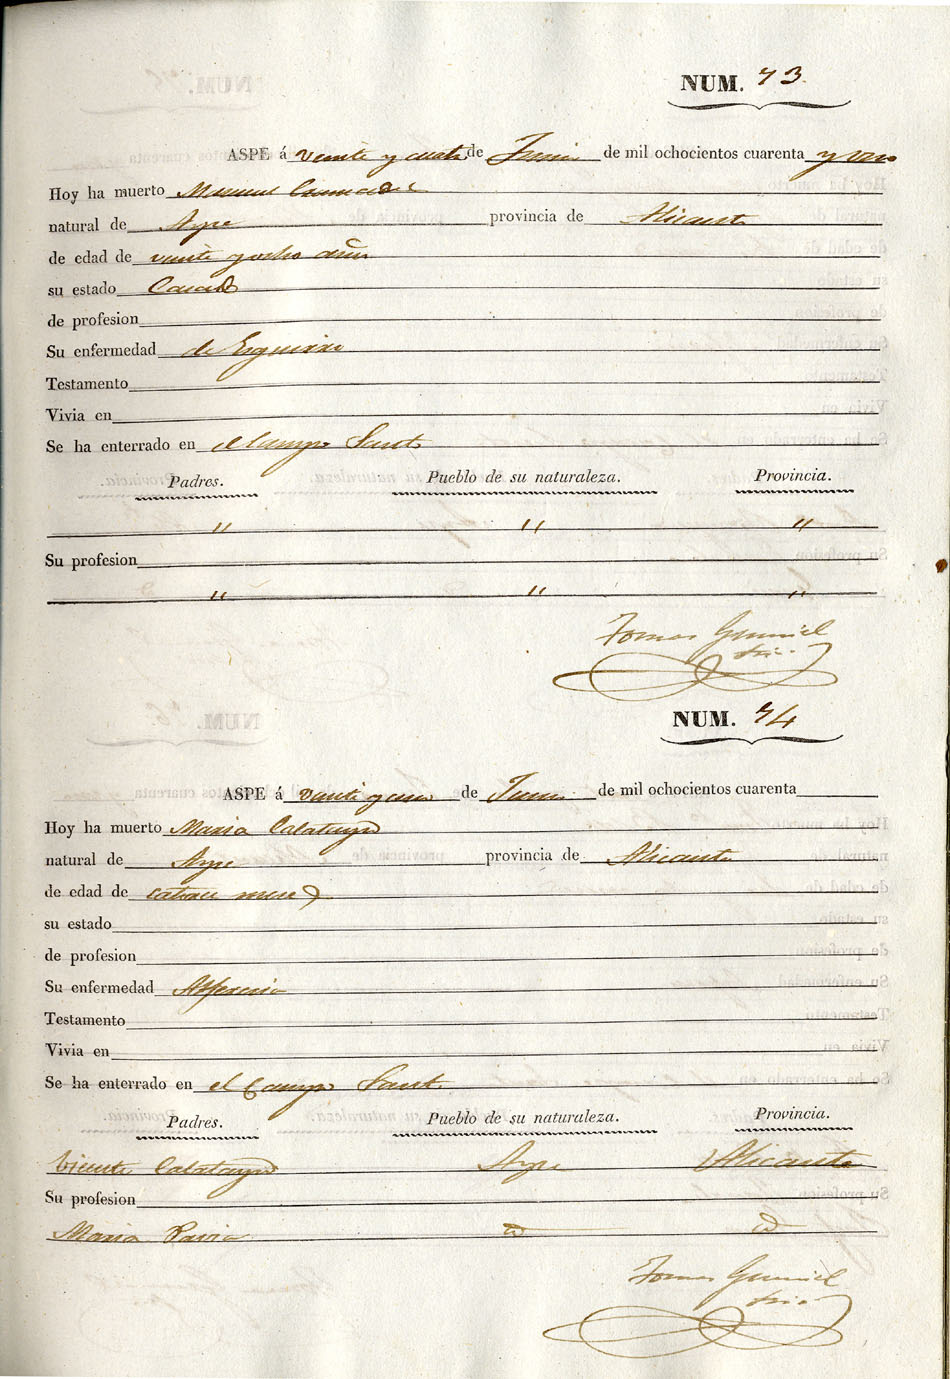 NUM. 73.
ASPE á veinte y cuatro de Junio de mil ochocientos cuarenta y uno
Hoy ha muerto Manuel
natural de Aspe provincia de Alicante
de edad de veinte y ocho años
su estado Casado
de profesion
Su enfermedad de
Testamento
Vivia en
Se ha enterrado en el Campo Santo
Padres. Pueblo de su naturaleza. Provincia.
" " "
Su profesion
" " "
Tomas
NUM. 74
ASPE á de Junio de mil ochocientos cuarenta
Hoy ha muerto Maria Calatayud
natural de Aspe provincia de Alicante
de edad de catorce meses
su estado
de profesion
Su enfermedad Alferecia
Testamento
Vivia en
Se ha enterrado en el Campo Santo
Padres. Pueblo de su naturaleza. Provincia.
Vicente Calatayud Aspe Alicante
Su profesion
Maria Pavia
Tomas